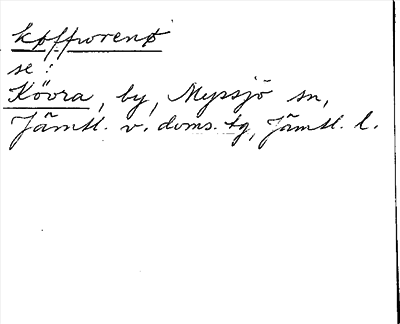 köffworenø
se:
Kövra, by, Myssjö sn,
Jämtl. v. doms. tg, Jämtl. l.